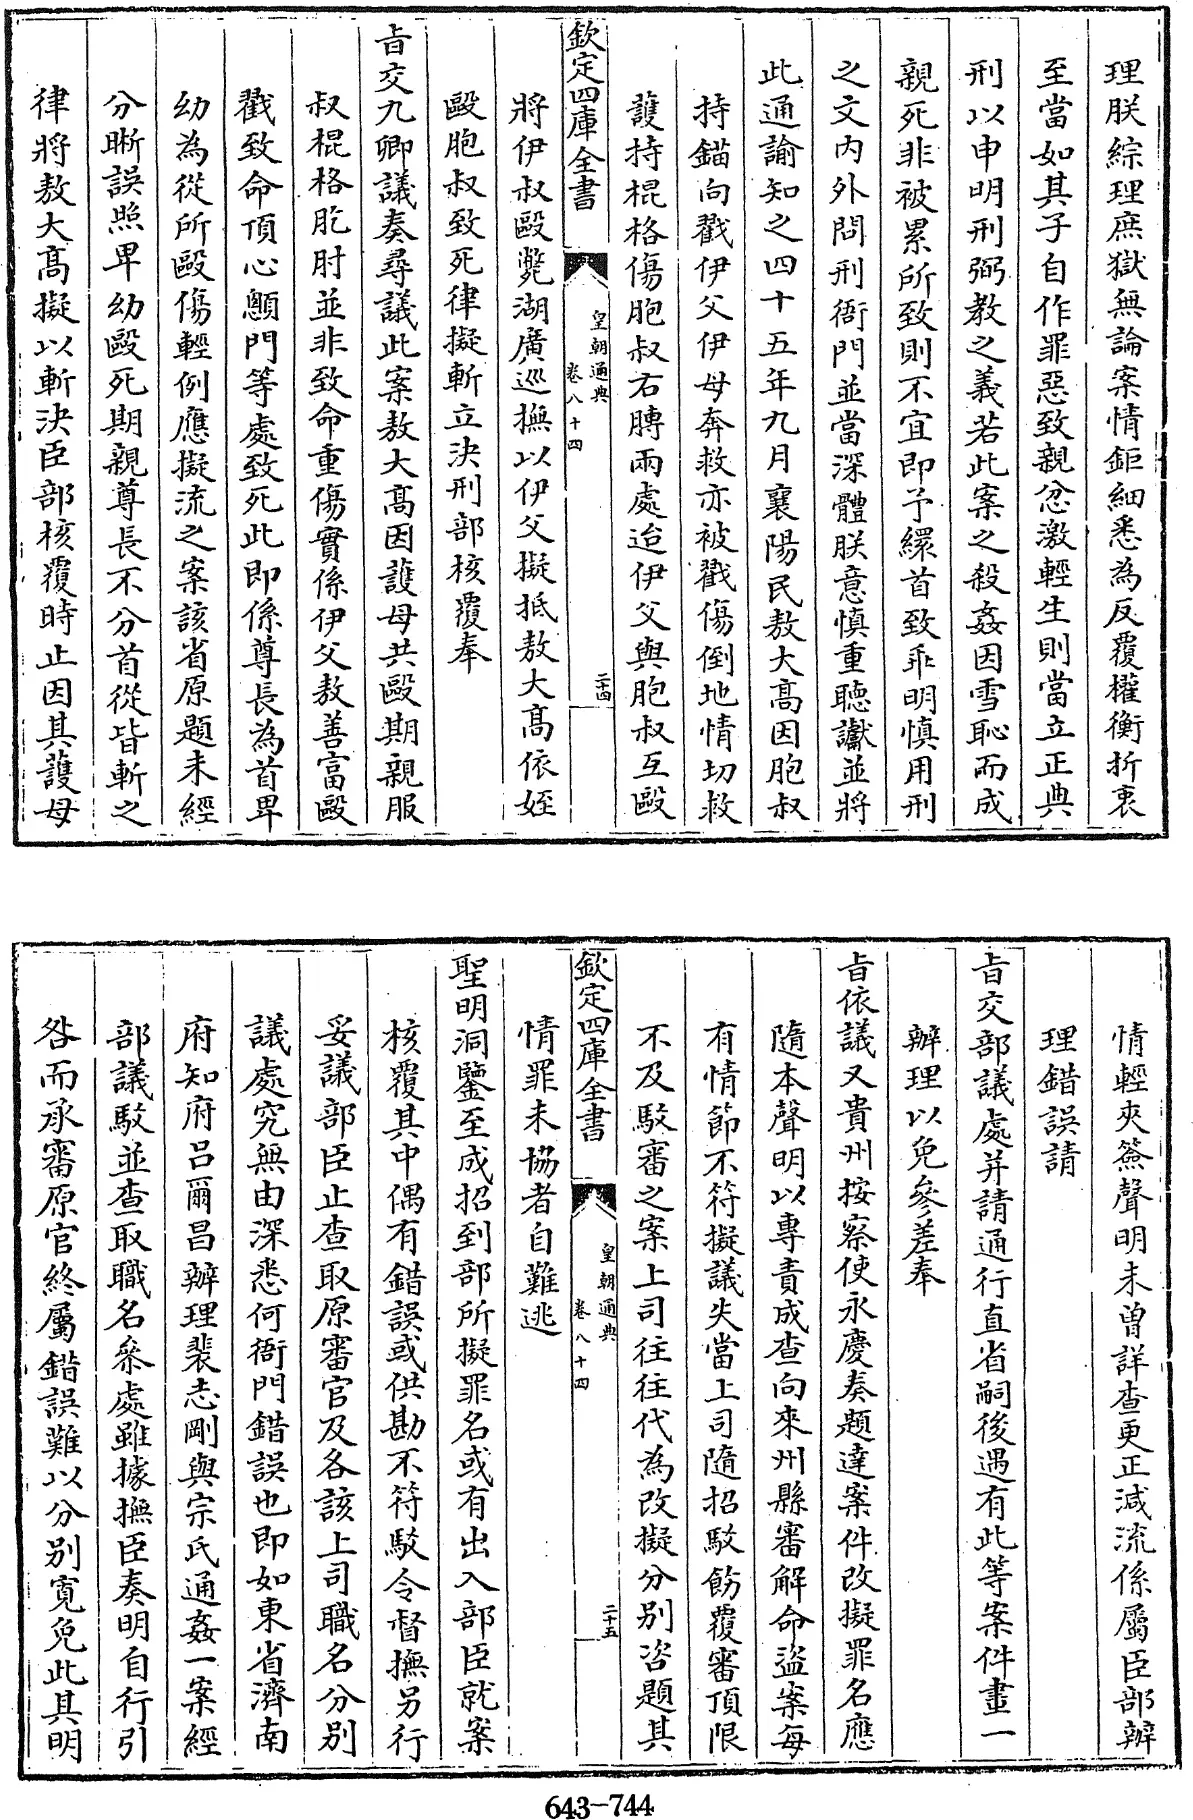 理朕綜理庶獄無論案情鉅細悉為反覆權衡折衷
至當如其子自作罪惡致親忿激輕生則當立正典
刑以申明刑弼教之義若此案之殺姦因雪恥而成
親死非被累所致則不宜即予繯首致乖明慎用刑
之文內外問刑衙門並當深體朕意慎重聽讞並將
此通諭知之四十五年九月襄陽民敖大高因胞叔
持錨向戳伊父伊母奔救亦被戳傷倒地情切救
護持棍格傷胞叔右膊兩處迨伊父與胞叔互毆
欽定四庫全書
皇朝通典
卷八十四
二十四
將伊叔毆斃湖廣巡撫以伊父擬抵敖大高依姪
毆胞叔致死律擬斬立決刑部核覆奉
旨交九卿議奏尋議此案敖大高因護母共毆期親服
叔棍格肐肘並非致命重傷實係伊父敖善富毆
戳致命頂心顖門等處致死此即係尊長為首卑
幼為從所毆傷輕例應擬流之案該省原題未經
分晰誤照卑幼毆死期親尊長不分首從皆斬之
律將敖大高擬以斬決臣部核覆時止因其護母
情輕夾簽聲明未曾詳查更正減流係屬臣部辦
理錯誤請
旨交部議處并請通行直省嗣後遇有此等案件畫一
辦理以免參差奉
旨依議又貴州按察使永慶奏題達案件改擬罪名應
隨本聲明以專責成查向來州縣審解命盜案每
有情節不符擬議失當上司隨招駁飭覆審頂限
不及駁審之案上司往往代為改擬分別咨題其
欽定四庫全書
皇朝通典
卷八十四
二十五
情罪未協者自難逃
聖明洞鑒至成招到部所擬罪名或有出入部臣就案
核覆其中偶有錯誤或供勘不符駁令督撫另行
妥議部臣止查取原審官及各該上司職名分別
議處究無由深悉何衙門錯誤也即如東省濟南
府知府呂爾昌辦理裴志剛與宗氏通姦一案經
部議駁並查取職名叅處雖據撫臣奏明自行引
咎而承審原官終屬錯誤難以分別寬免此其明
643-744